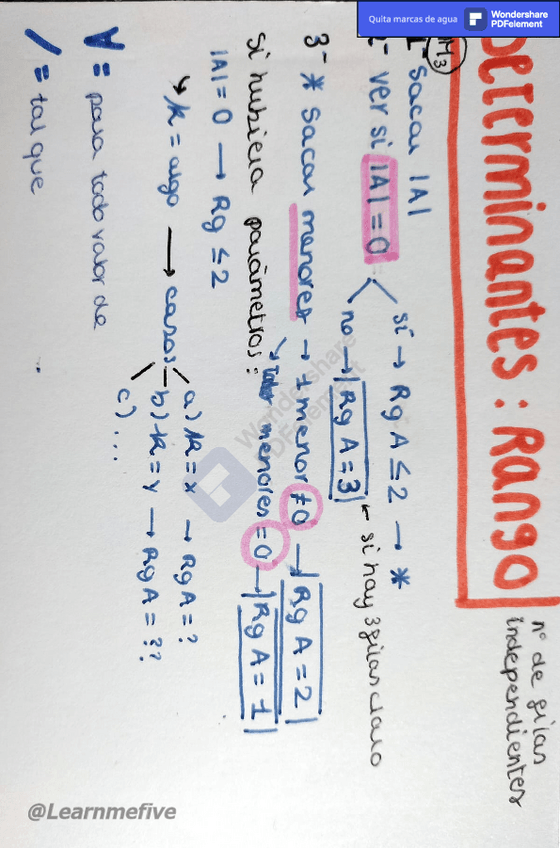 Quita marcas de agua
Wondershare
PDFelement
Determinantes: Rango
nº de filas
independientes
M3
1- sacar |A|
2- ver si |A| = 0
sí → Rg A ≤ 2 → *
no → |Rg A = 3| ← si hay 3 filas claro
3- * sacar menores → 1 menor ≠ 0 → |Rg A = 2|
↘ menores = 0 → |Rg A = 1|
si hubiera parámetros:
|A| = 0 → Rg ≤ 2
↳ k = algo → casos
a) k = x → Rg A = ?
b) k = y → Rg A = ??
c) ...
∀ = para todo valor de
/ = tal que
..
Wondershare
PDFelement
@Learnmefive